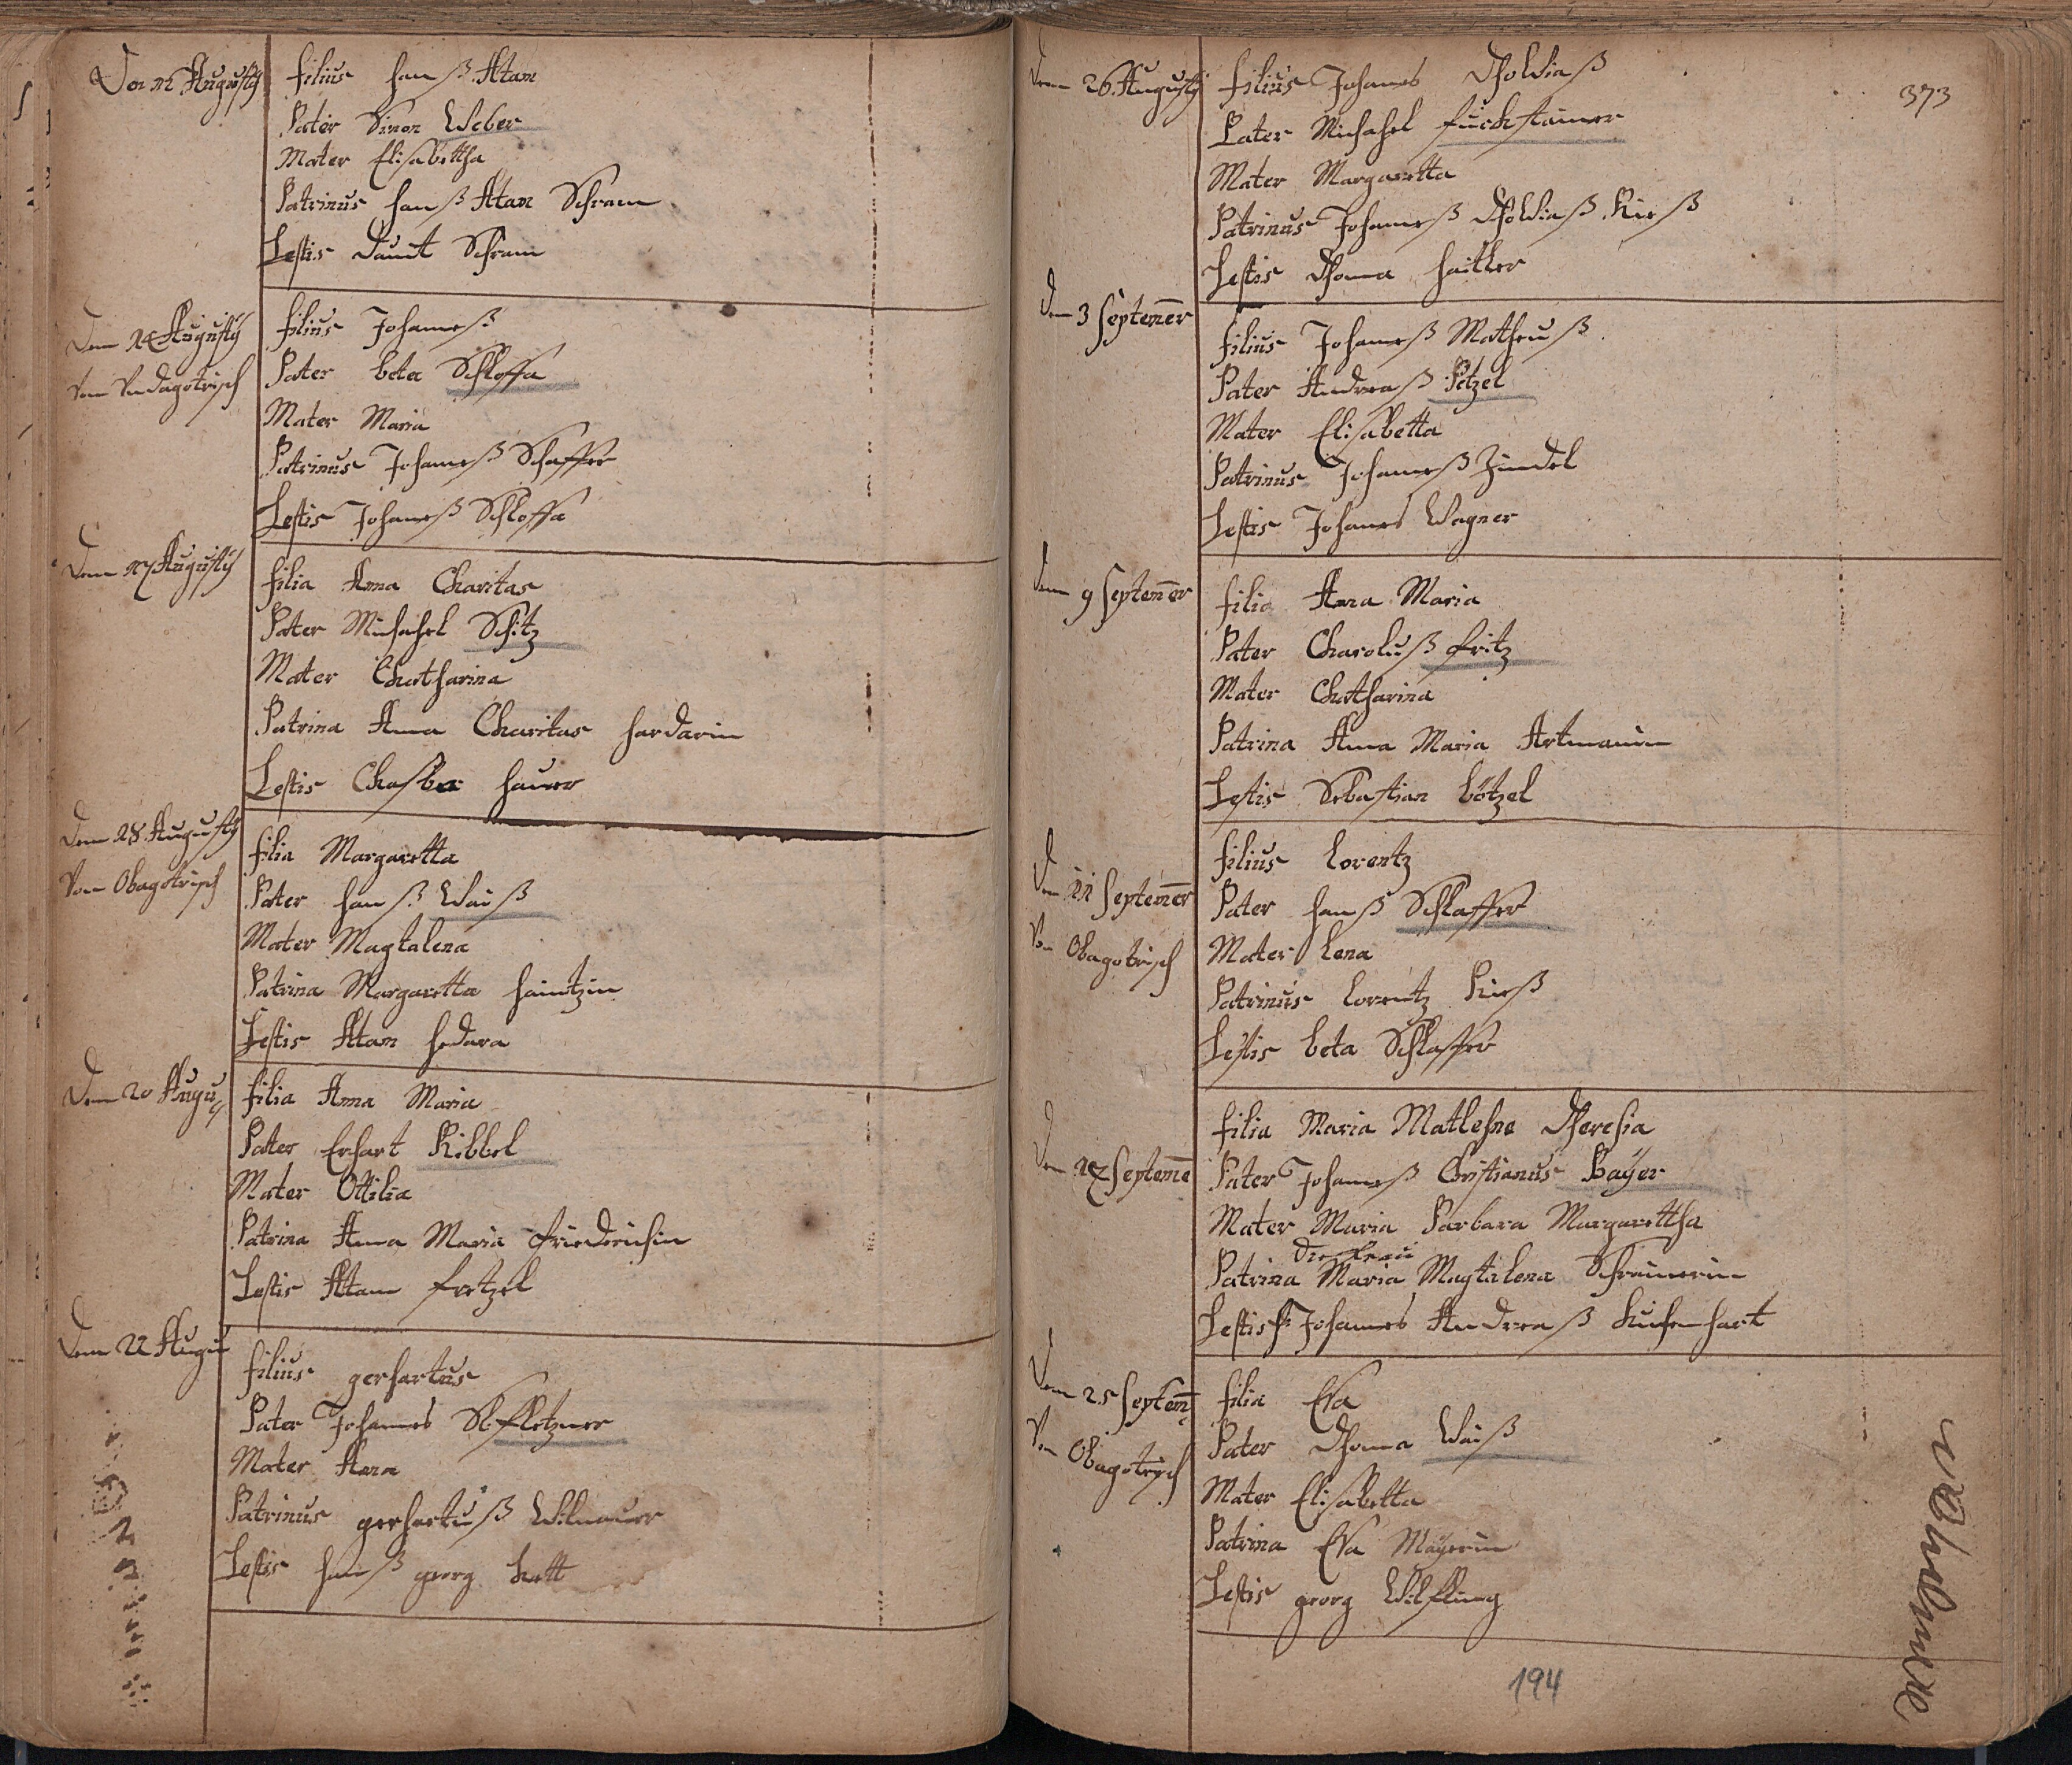 Den 12 Augusty
filius hanß Atam
Pater Simon Weber
Mater Elisabettha
Patrinus hanß Atam Schram
Testis Dauit Schram
Dem 14 Augusty
Vom Vndagotrisch
filius Johaneß
Pater beta Schloffa
Mater Maria
Patrinus Johaneß Schaffer
Testis Johaneß Schloffa
Dem 17 Augusty
filia Anna Charitas
Pater Michahel Schitz
Mater Chatharina
Patrina Anna Charitas hardarin
Testis Chasber hauer
Dem 18 Augusty
Von Obagotrisch
filia Margaretta
Pater hanß Waiß
Mater Magtalena
Patrina Margaretta haintzin
Testis Atam hedara
Dem 20 Augu
filia Anna Maria
Pater Erhart Kibbel
Mater Ottilia
Patrina Anna Maria friederichin
Testis Atam fretzel
Dem 22 Augu
filius gerhartus
Pater Johannes
Mater Anna
Patrinus gerhartuß Wilnauer
Testis hanß georg hett
373
Dem 26 Augusty
filius Johanes Dhobiaß
Pater Michahel fuichstainer
Mater Margaretta
Patrinus Johaneß Dhobiaß Kirß
Testis Dhoma haitler
Dem 3 Septemer
filius Johaneß Matheuß
Pater Andreaß Petzel
Mater Elisabetta
Patrinus Johaneß Zindel
Testis Johanes Wagner
Dem 9 Septemer
filia Anna Maria
Pater Charoluß fritz
Mater Chatharina
Patrina Anna Maria Artmanin
Testis Sebastian bötzel
Dem 11 Septemer
Von Obagotrisch
filius Lorentz
Pater hanß Schlaffer
Mater Lena
Patrinus Lorentz Kirß
Testis beta Schlaffer
Den Septeme
filia Maria Matlehna Dheresia
Pater Johaneß Cristianus Bayer
Mater Maria Barbara Margarettha
die frau
Patrina Maria Magtalena Schreinerin
Testis Johannes Andreaß
Dem 25 Septem
Von Obagotrisch
filia Efa
Pater Dhoma Waiß
Mater Elisabetta
Patrina Efa Mayerin
Testis georg Wilfling
194